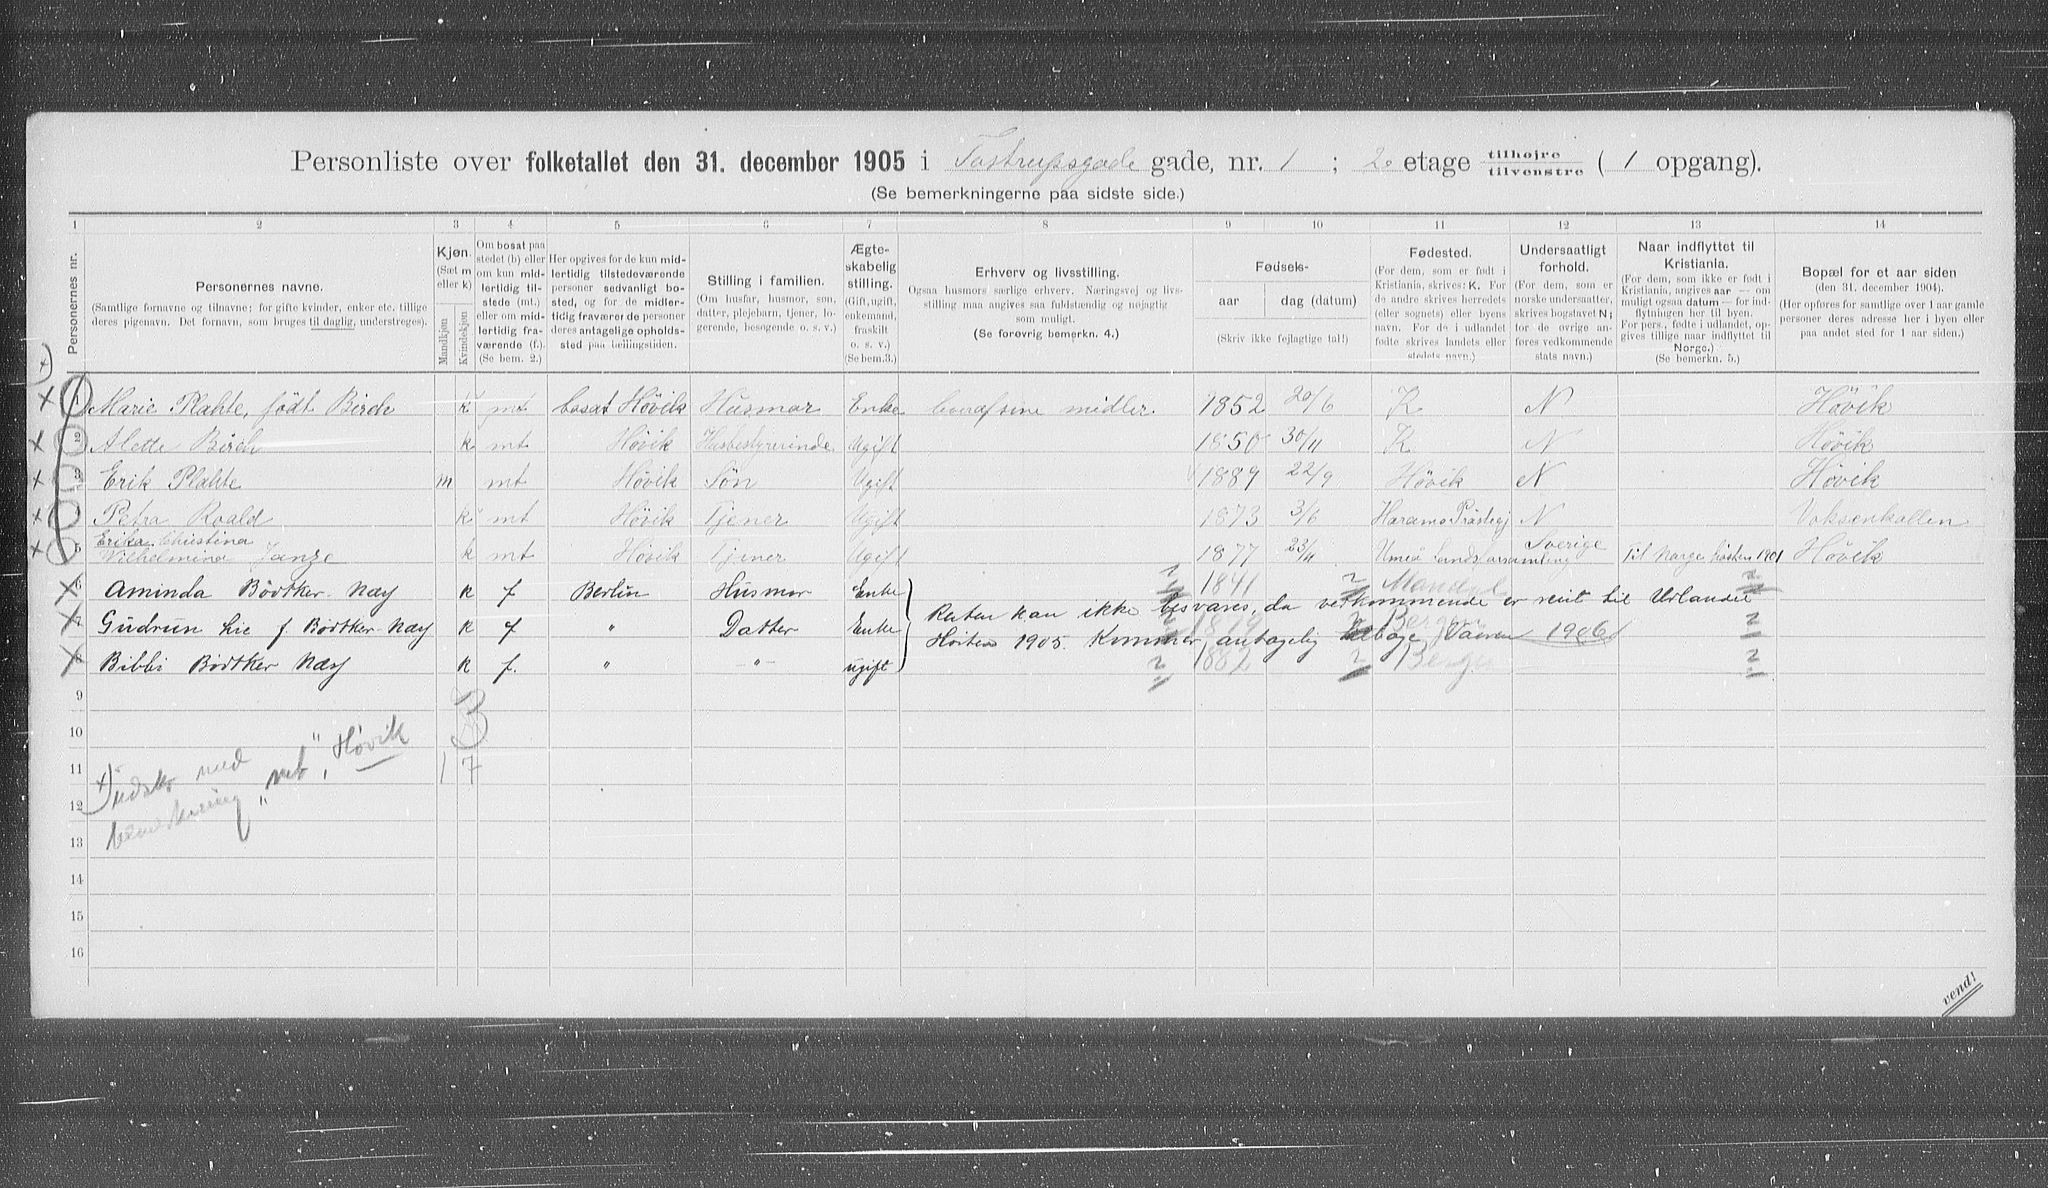 Personliste over folketallet den 31. december 1905 i Tostrupsgade gade, nr. 1 ; 2. etage tilhøjre tilvenstre ( 1 opgang).
(Se bemerkningerne paa sidste side.)
1 2 3 4 5 6 7 8 9 10 11 12 13 14
Personernes nr.
Personernes navne.
(Samtlige fornavne og tilnavne; for gifte kvinder, enker etc. tillige
deres pigenavn. Det fornavn, som bruges til daglig, understreges).
Kjøn.
(Sæt m
eller k)
Mandkjøn
Kvindekjøn
Om bosat paa
stedet (b) eller
om kun mid-
lertidig til-
stede (mt.)
eller om mid-
lertidig fra-
værende (f.).
(Se bem. 2.)
Her opgives for de kun mid-
lertidig tilstedeværende
personer sedvanlig bo-
sted, og for de midler-
tidig fraværende personer
deres antagelige opholds-
sted paa tællingstiden.
Stilling i familien.
(Om husfar, husmor, søn,
datter, plejebarn, tjener, lo-
gerende, besøgende o. s. v.)
Ægte-
skabelig
stilling.
(Gift, ugift,
enkemand,
fraskilt
o. s. v.)
(Se bem.3.)
Erhverv og livsstilling.
Ogsaa husmors særlige erhverv. Næringsvej og livs-
stilling maa angives saa fuldstændig og nøjagtig
som muligt.
(Se forøvrig bemerkn. 4.)
Fødsels-
aar
dag (datum)
(Skriv ikke fejlagtige tal!)
Fødested.
(For dem, som er født i
Kristiania, skrives: K. For
de andre skrives herredets
(eller sognets) eller byens
navn. For de i udlandet
fødte skrives landets eller
stedets navn.)
Undersaatligt
forhold.
(For dem, som er
norske undersaatter,
skrives bogstavet N;
for de øvrige an-
føres vedkommende
stats navn.)
Naar indflyttet til
Kristiania.
(For dem, som ikke er født i
Kristiania, angives aar — om
muligt ogsaa datum — for ind-
flytningen her til byen.
For pers., fødte i udlandet, op-
gives tillige naar indflyttet til
Norge.)
(Se bemerkn. 5.)
Bopæl for et aar siden
(den 31. december 1904).
(Her opføres for samtlige over 1 aar gamle
personer deres adresse her i byen eller
paa andet sted for 1 aar siden.)
1 Marie Plahte, født Birch k mt bosat Høvik Husmor Enke lever af sine midler. 1852 20/6 K N Høvik
2 Alette Birch k mt Høvik Husbestyrerinde Ugift 1850 30/11 K N Høvik
3 Erik Plahte m mt Høvik Søn Ugift 1889 22/9 Høvik N Høvik
Petra Roald k mt Høvik Tjener Ugift 1873 3/6 Haramo Prästegj N Voksenkollen
Erika Christina
5 Vilhelmina Janze k mt Høvik Tjener Ugift 1877 23/11 Umeå landsförsamling Sverige Til Norge hösten 1901 Høvik
6 Aminda Bödtker-Næy k f Berlin Husmor Enke 1841 Mandal
Resten kan ikke besvares, da vedkommende er reist til Udlandet
7 Gudrun Lie f. Bødtker-Næy k f " Datter Enke Bergen
Høsten 1905. Kommer antagelig tilbage Vaaren 1906
8 Bibbi Bødtker Næy k f. " -"- ugift 1882 Bergen
9
10
11 1 7
12
13
14
15
16
x) udsk. med
bemerkning "mt", Høvik
vend!